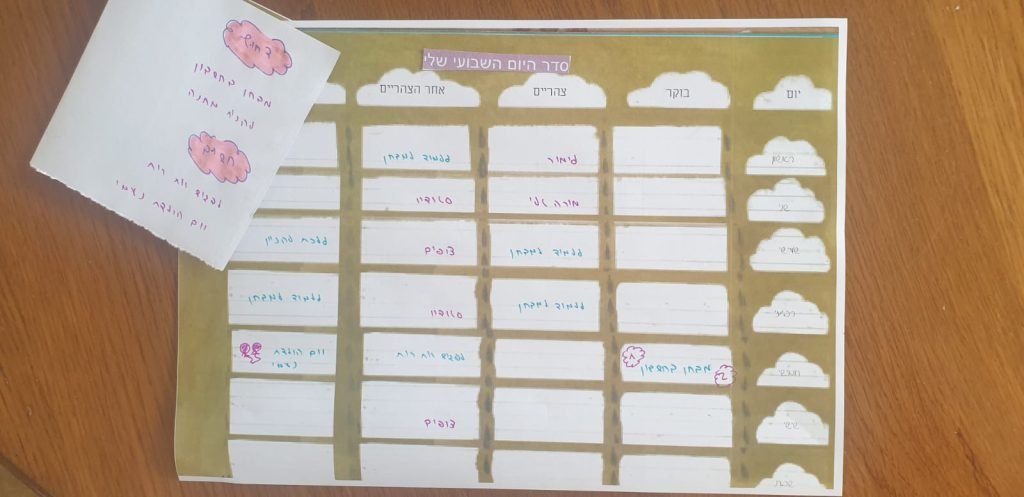 סדר היום השבועי שלי
יום
בוקר
צהריים
אחר הצהריים
ראשון
לימור
ללמוד למבחן
שני
מורה אלי
סטודיו
שלישי
ללמוד למבחן
צופים
ללכת לקניון
רביעי
ללמוד למבחן
סטודיו
ללמוד למבחן
חמישי
מבחן בחשבון
לפגוש את רות
יום הולדת
נעמי
שישי
צופים
שבת
דחוף
מבחן בחשבון
לקנות מתנה
חשוב
לפגוש את רות
יום הולדת נעמי